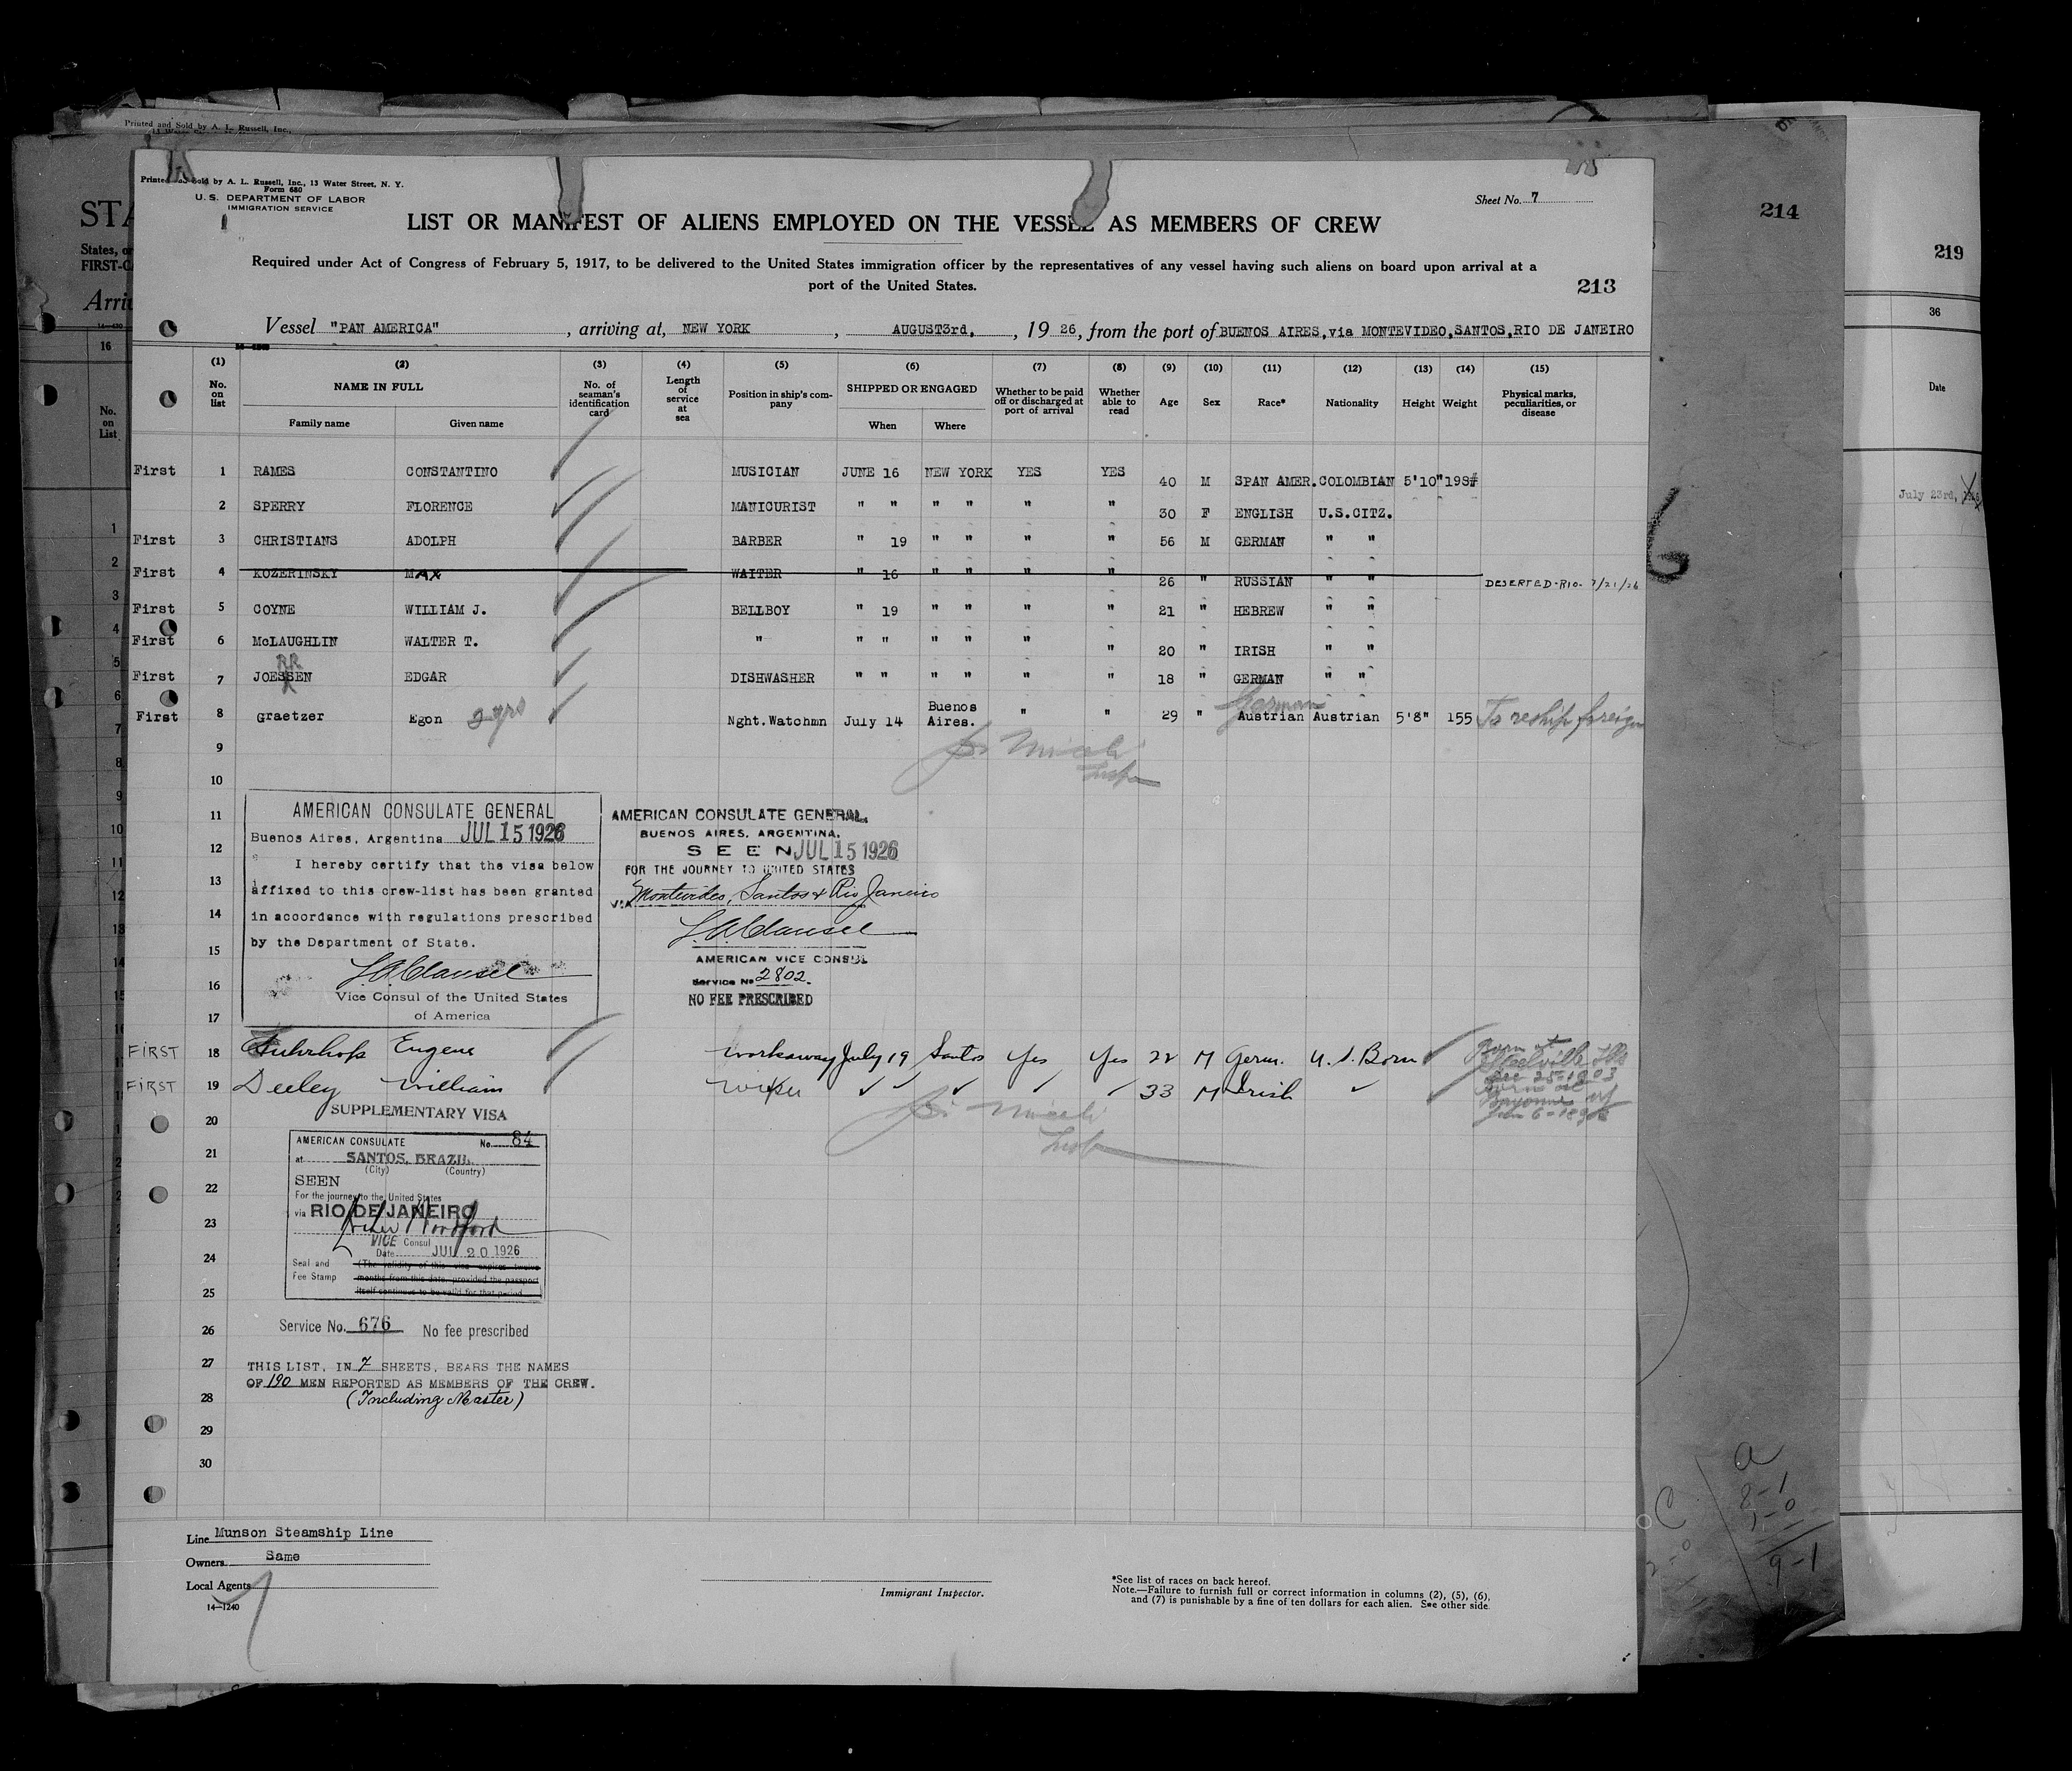 Printed and Sold by A. L. Russell, Inc.,
Printed and Sold by A. L. Russell, Inc., 13 Water Street, N. Y.
Form 680
U. S. DEPARTMENT OF LABOR
IMMIGRATION SERVICE
Sheet No. 7
214
219
LIST OR MANIFEST OF ALIENS EMPLOYED ON THE VESSEL AS MEMBERS OF CREW
Required under Act of Congress of February 5, 1917, to be delivered to the United States immigration officer by the representatives of any vessel having such aliens on board upon arrival at a
port of the United States.
213
Vessel "PAN AMERICA", arriving at, NEW YORK, AUGUST3rd, , 19 26, from the port of BUENOS AIRES, via MONTEVIDEO, SANTOS, RIO DE JANEIRO
(1) (2) (3) (4) (5) (6) (7) (8) (9) (10) (11) (12) (13) (14) (15)
No. on list NAME IN FULL Family name Given name No. of seaman's identification card Length of service at sea Position in ship's company SHIPPED OR ENGAGED When Where Whether to be paid off or discharged at port of arrival Whether able to read Age Sex Race* Nationality Height Weight Physical marks, peculiarities, or disease
First 1 RAMES CONSTANTINO MUSICIAN JUNE 16 NEW YORK YES YES 40 M SPAN AMER. COLOMBIAN 5'10" 198#
2 SPERRY FLORENCE MANICURIST " " " " " " 30 F ENGLISH U.S.CITZ.
First 3 CHRISTIANS ADOLPH BARBER " 19 " " " " 56 M GERMAN " "
First 4 KOZERINSKY MAX WAITER " 16 " " " " 26 " RUSSIAN " " DESERTED-RIO- 7/21/26
First 5 COYNE WILLIAM J. BELLBOY " 19 " " " " 21 " HEBREW " "
First 6 McLAUGHLIN WALTER T. " " " " " " " 20 " IRISH " "
RR
First 7 JOESSEN EDGAR DISHWASHER " " " " " " 18 " GERMAN " "
German
First 8 Graetzer Egon 2 yrs Nght.Watchmn July 14 Buenos Aires. " " 29 " Austrian Austrian 5'8" 155 To reship foreign
9
10
11
12
13
14
15
16
17
AMERICAN CONSULATE GENERAL
Buenos Aires, Argentina JUL 15 1926
I hereby certify that the visa below
affixed to this crew-list has been granted
in accordance with regulations prescribed
by the Department of State.
Vice Consul of the United States
of America
AMERICAN CONSULATE GENERAL,
BUENOS AIRES, ARGENTINA.
SEEN JUL 15 1926
FOR THE JOURNEY TO UNITED STATES
via Montevideo, Santos & Rio Janeiro
AMERICAN VICE CONSUL
Service No 2802.
NO FEE PRESCRIBED
FIRST 18 Fuhrhop Eugene Workaway July 19 Santos Yes Yes 22 M Germ. U. S. Born Born at Steelville Ills Dec 25-1903
FIRST 19 Deeley William Wiper 33 M Irish Born at Bayonne NJ
SUPPLEMENTARY VISA
20
21
22
23
24
25
26
27
28
29
30
AMERICAN CONSULATE No. 84
at SANTOS, BRAZIL.
(City) (Country)
SEEN
For the journey to the United States
via RIO DE JANEIRO
VICE Consul
Date JUL 20 1926
Seal and (The validity of this visa expires twelve
Fee Stamp months from this date, provided the passport
itself continues to be valid for that period
Service No. 676 No fee prescribed
THIS LIST, IN 7 SHEETS, BEARS THE NAMES
OF 190 MEN REPORTED AS MEMBERS OF THE CREW.
(Including Master)
Line Munson Steamship Line
Owners Same
Local Agents
14—1240
Immigrant Inspector.
*See list of races on back hereof.
Note.—Failure to furnish full or correct information in columns (2), (5), (6),
and (7) is punishable by a fine of ten dollars for each alien. See other side.
36
Date
July 23rd,